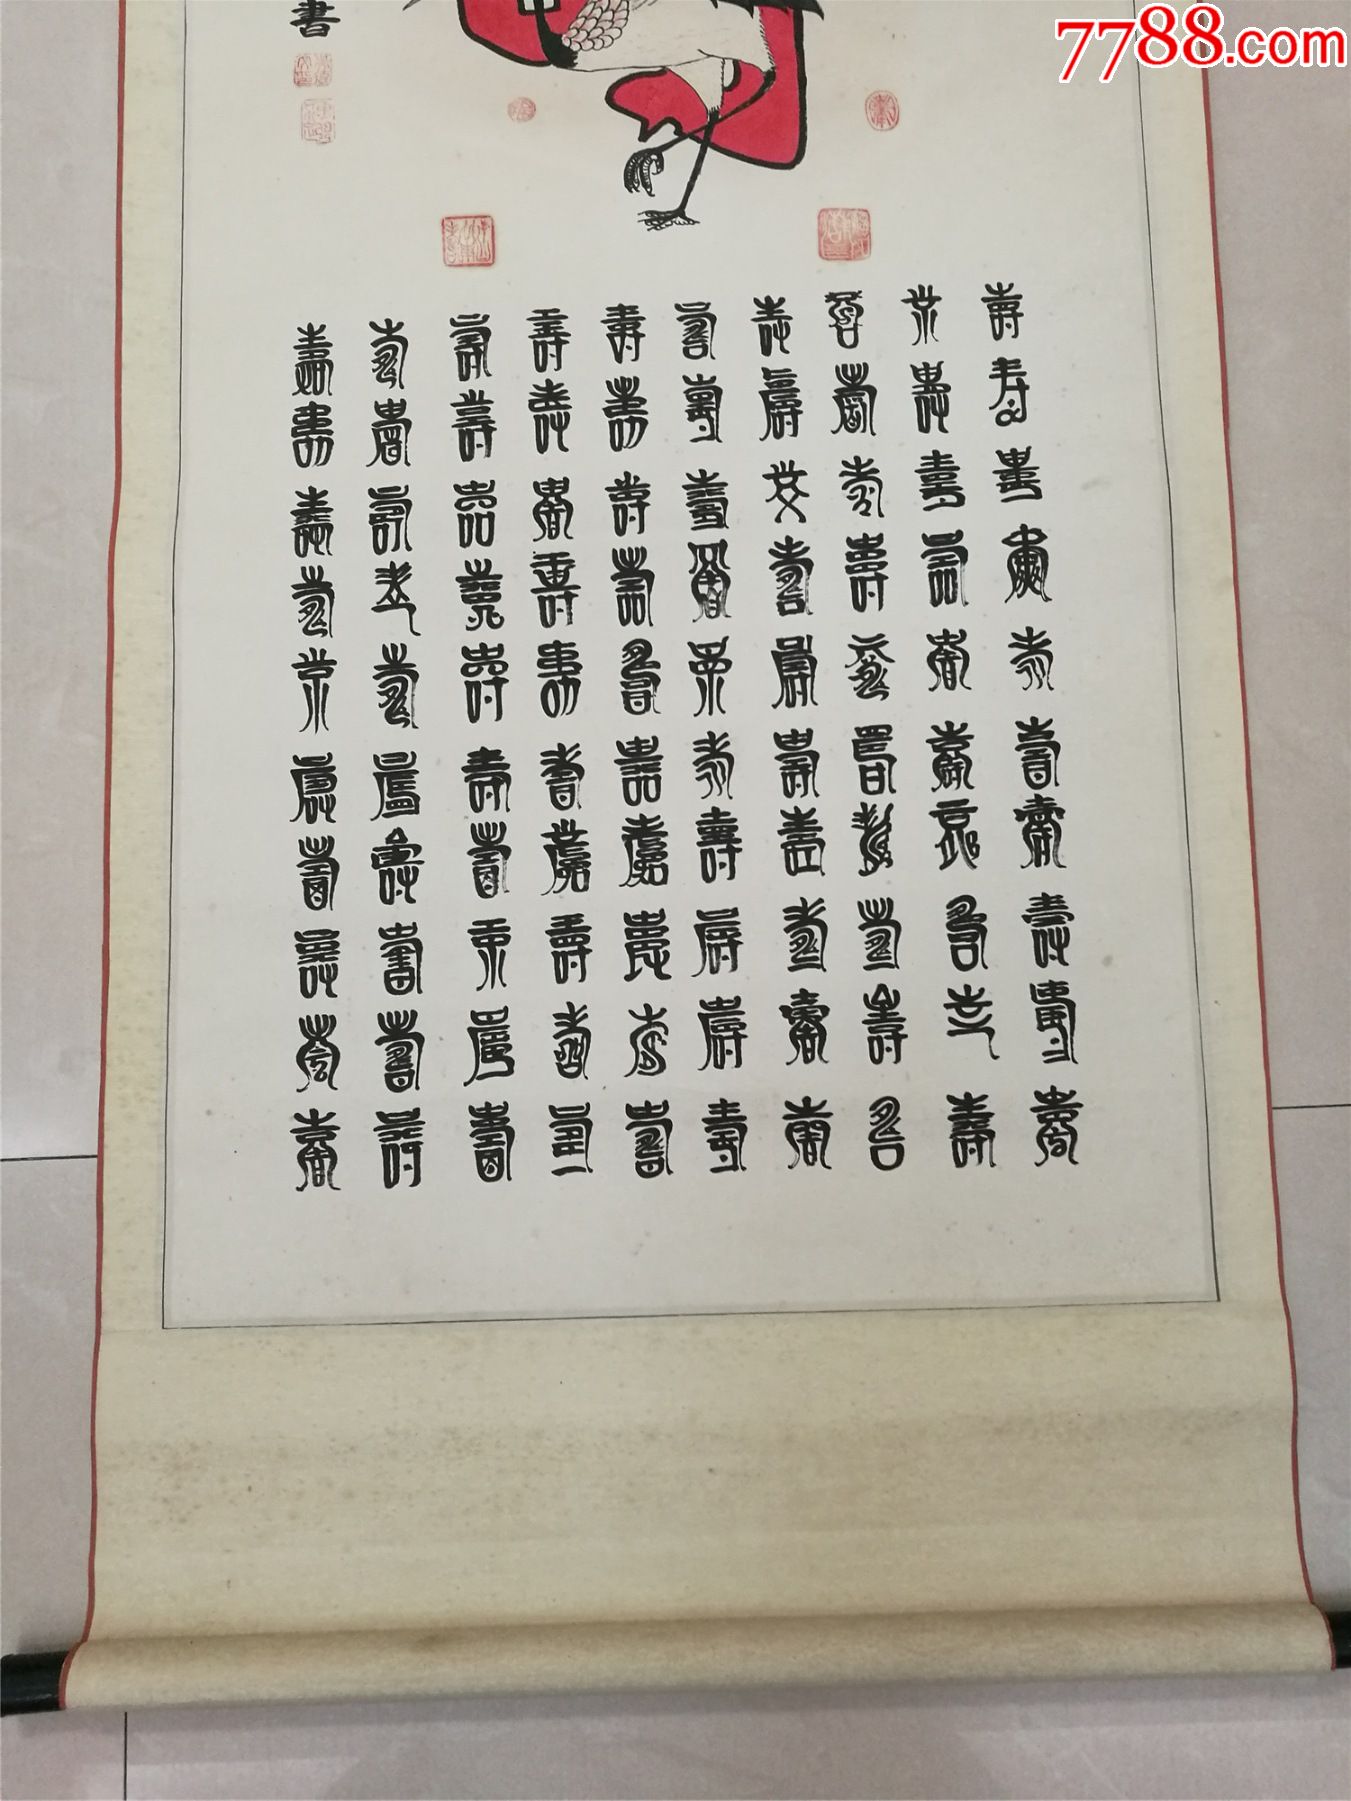 7788.com
壽壽壽壽壽壽壽壽壽壽
壽壽壽壽壽壽壽壽壽壽
壽壽壽壽壽壽壽壽壽壽
壽壽壽壽壽壽壽壽壽壽
壽壽壽壽壽壽壽壽壽壽
壽壽壽壽壽壽壽壽壽壽
壽壽壽壽壽壽壽壽壽壽
壽壽壽壽壽壽壽壽壽壽
壽壽壽壽壽壽壽壽壽壽
壽壽壽壽壽壽壽壽壽壽
書